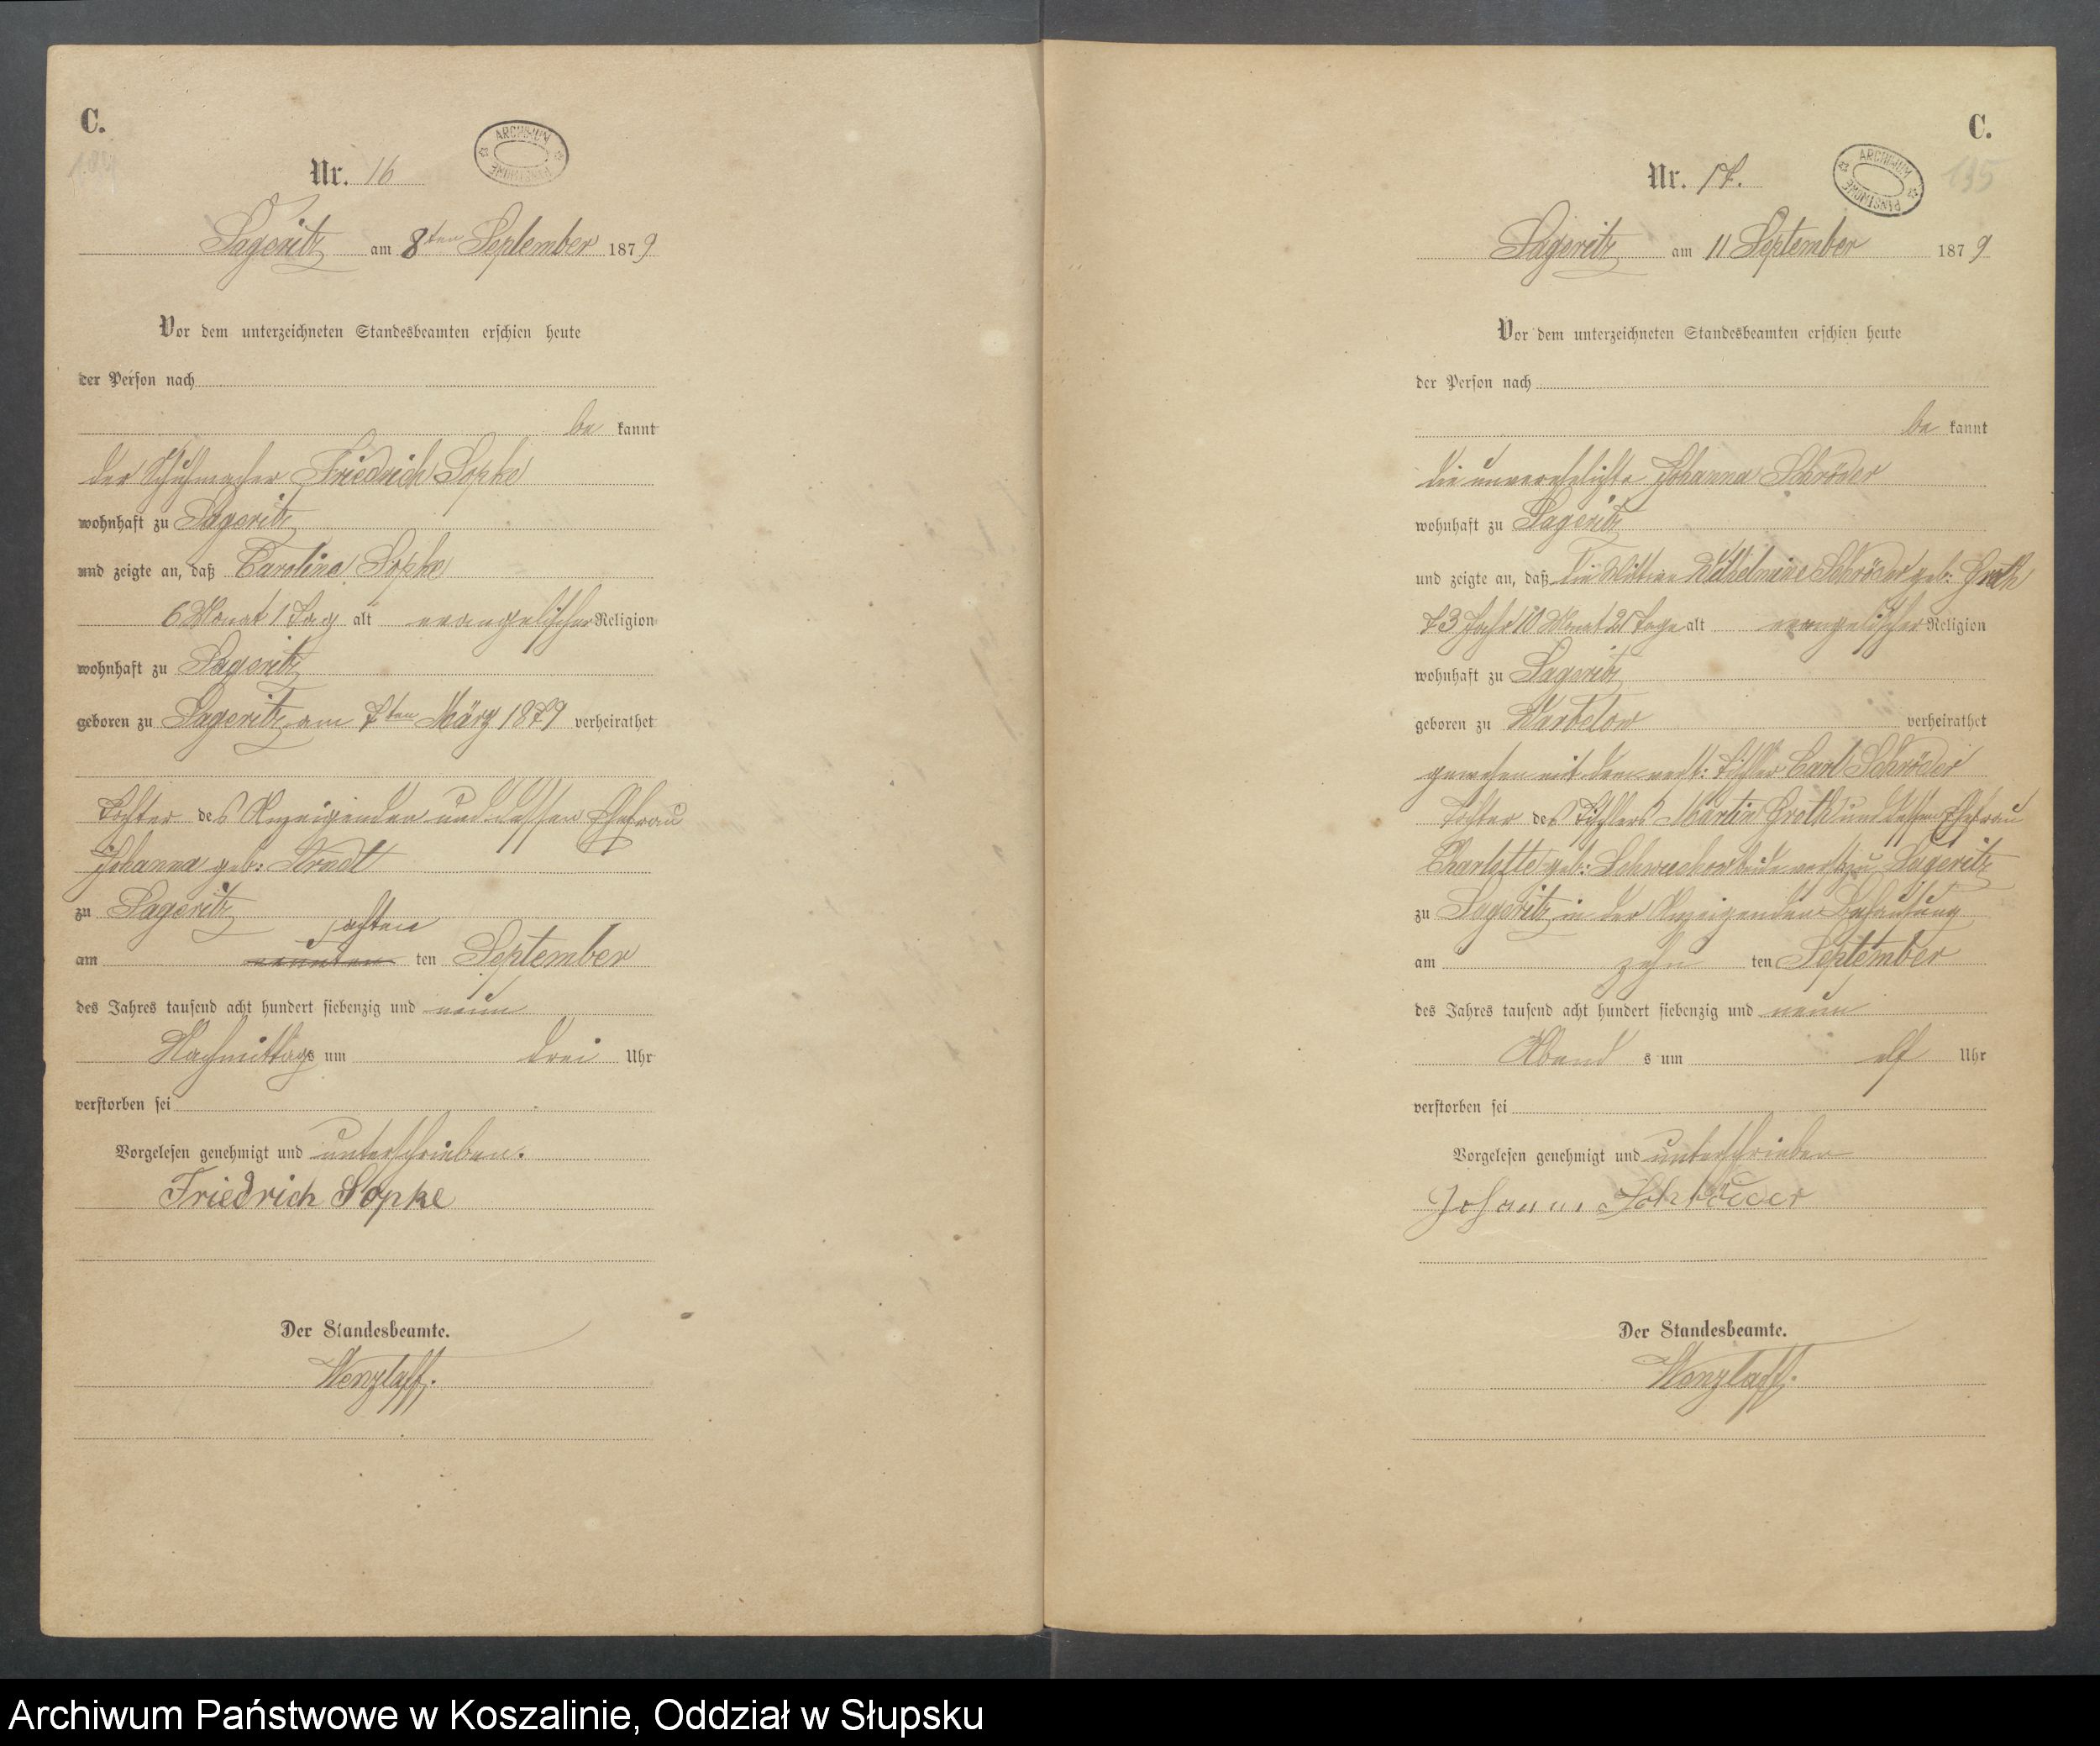 C.
Nr. 16
ARCHIWUM PAŃSTWOWE
Sageritz am 8ten September 1879
Vor dem unterzeichneten Standesbeamten erschien heute
der Person nach
be kannt
der Schuhmacher Friedrich Sopke
wohnhaft zu Sageritz
und zeigte an, daß Caroline Sopke
6 Monat 1 Tag alt evangelischer Religion
wohnhaft zu Sageritz
geboren zu Sageritz am 7ten März 1879 verheirathet
Tochter des Anzeigenden und dessen Ehefrau
Johanna geb: Arndt
zu Sageritz
achten
am neunten ten September
des Jahres tausend acht hundert siebenzig und neun
Nachmittags um drei Uhr
verstorben sei
Vorgelesen genehmigt und unterschrieben.
Friedrich Sopke
Der Standesbeamte.
Wenzlaff.
C.
135
Nr. 17.
ARCHIWUM PAŃSTWOWE
Sageritz am 11 September 1879
Vor dem unterzeichneten Standesbeamten erschien heute
der Person nach
be kannt
die unverehelichte Johanna Schröder
wohnhaft zu Sageritz
und zeigte an, daß die Wittwe Wilhelmine Schröder geb: Groth
73 Jahr 10 Monat 21 Tage alt evangelischer Religion
wohnhaft zu Sageritz
geboren zu Warbelow verheirathet
gewesen mit dem verst: Tischler Carl Schröder
Tochter des Tischlers Martin Groth und dessen Ehefrau
Charlotte geb: beide verst: zu Sageritz
zu Sageritz in der Anzeigenden Behausung
am zehn ten September
des Jahres tausend acht hundert siebenzig und neun
Abend s um elf Uhr
verstorben sei
Vorgelesen genehmigt und unterschrieben
Johanna Schröder
Der Standesbeamte.
Wenzlaff.
Archiwum Państwowe w Koszalinie, Oddział w Słupsku